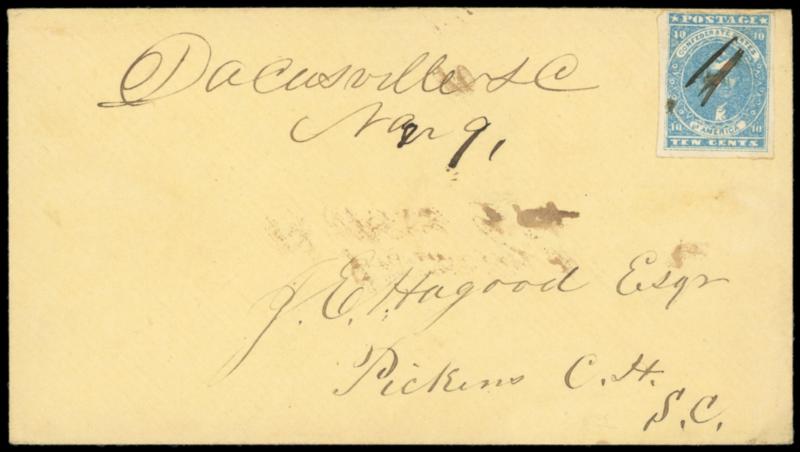 Dacusville S C
Mar 9,
POSTAGE
10 10
CONFEDERATE STATES
OF AMERICA
10 10
TEN CENTS
J. E. Hagood Esqr
Pickens C. H.
S. C.